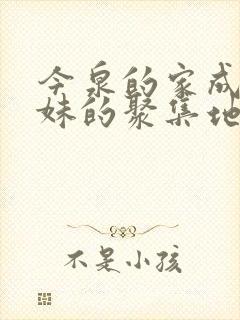 今泉的家成
妹的聚集地
不是小孩